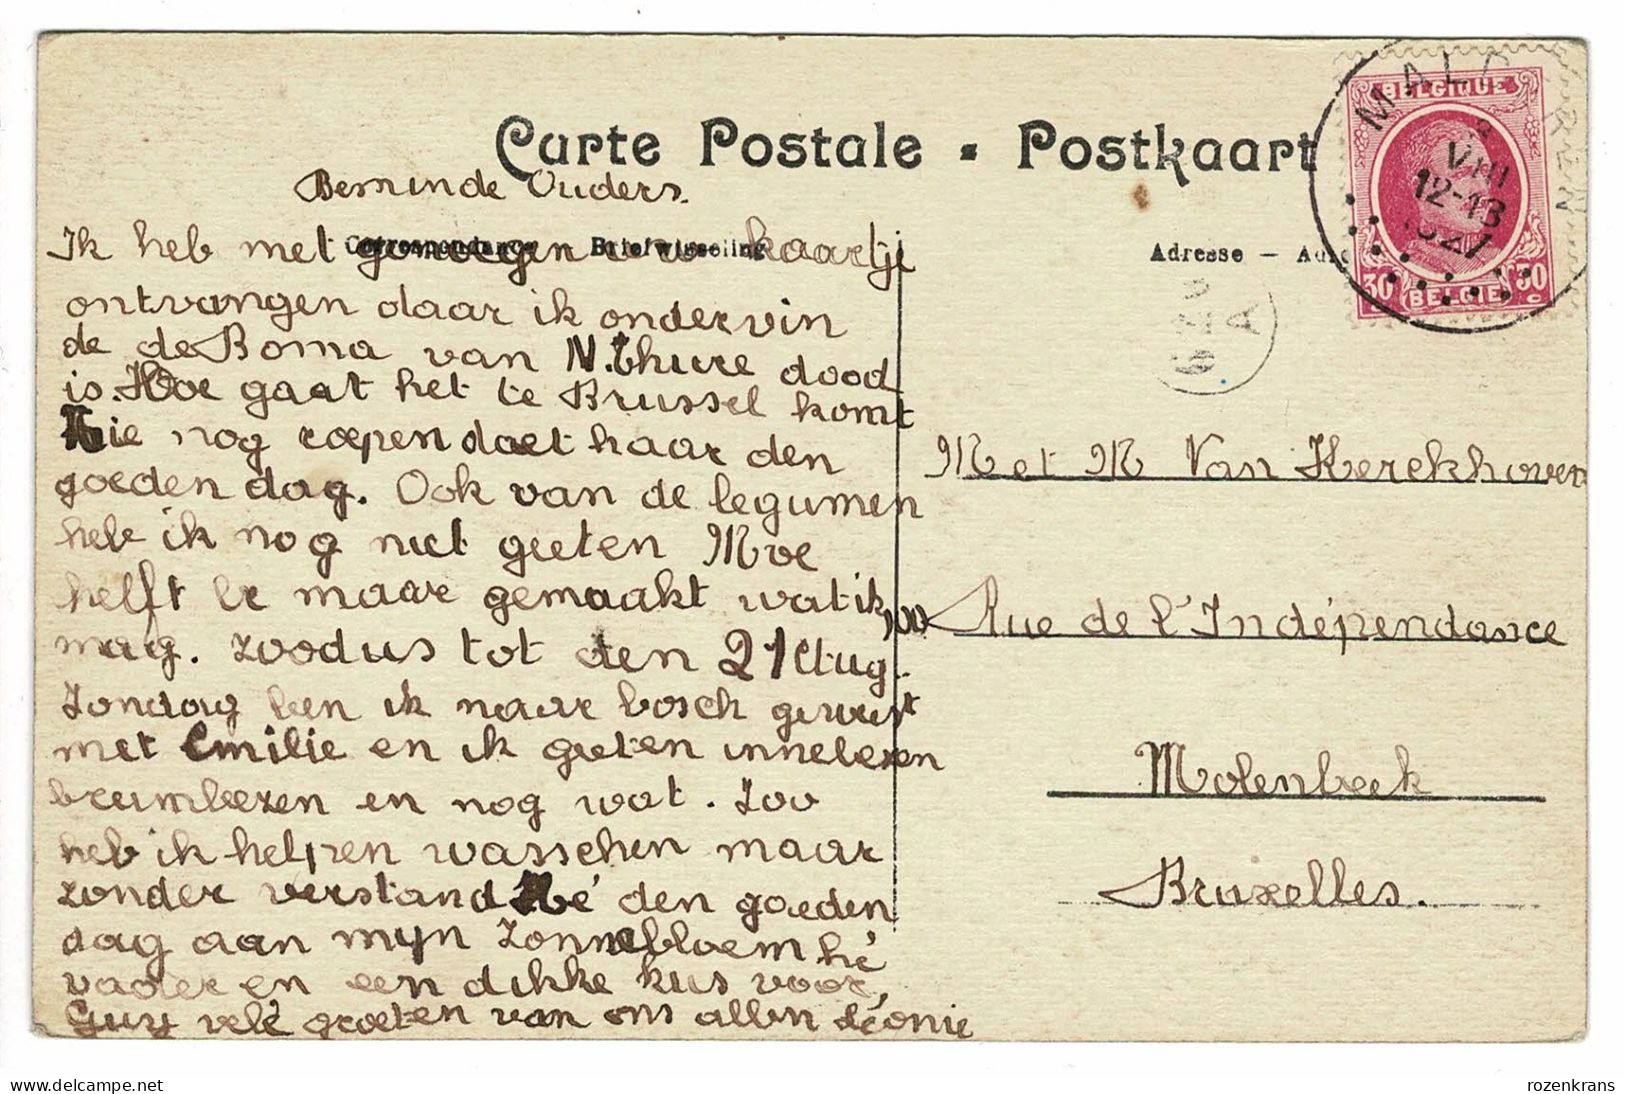 Carte Postale - Postkaart
Beminde Ouders.
Correspondance Briefwisseling
Adresse —
Ik heb met genoegen uw kaartje
ontvangen daar ik ondervin
de de Boma van N. Thure dood
is. Hoe gaat het te Brussel komt
Zie nog roepen doet haar den
goeden dag. Ook van de legumen
heb ik nog niet geeten Moe
helft er maar gemaakt wat ik
mag. Zoodus tot den 21 Aug.
Zondag ben ik naar bosch geweest
met Emilie en ik geeten innebezen
breembezen en nog wat. Zoo
heb ik helpen wasschen maar
zonder verstand hé den goeden
dag aan mijn Zonnebloem hé
vader en een dikke kus voor
Guy velé groeten van ons allen Léonie
BELGIQUE
30 30
c
BELGIE
MALDEREN
VIII
12-13
1927
A
M et M Van Kerckhoven
100 Rue de l'Indépendance
Molenbeek
Bruxelles.
rozenkrans